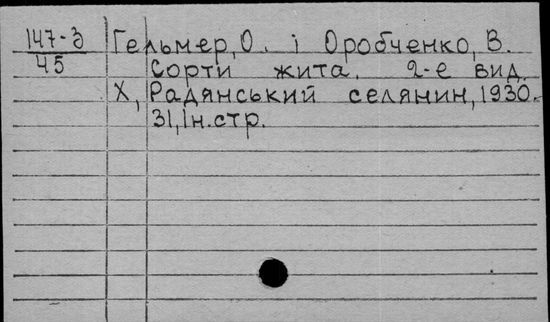 147-3
45
Гельмер, О. і Оробченко, В.
Сорти жита. 2-е вид.
Х, Радянський селянин, 1930.
31, Iн.стр.